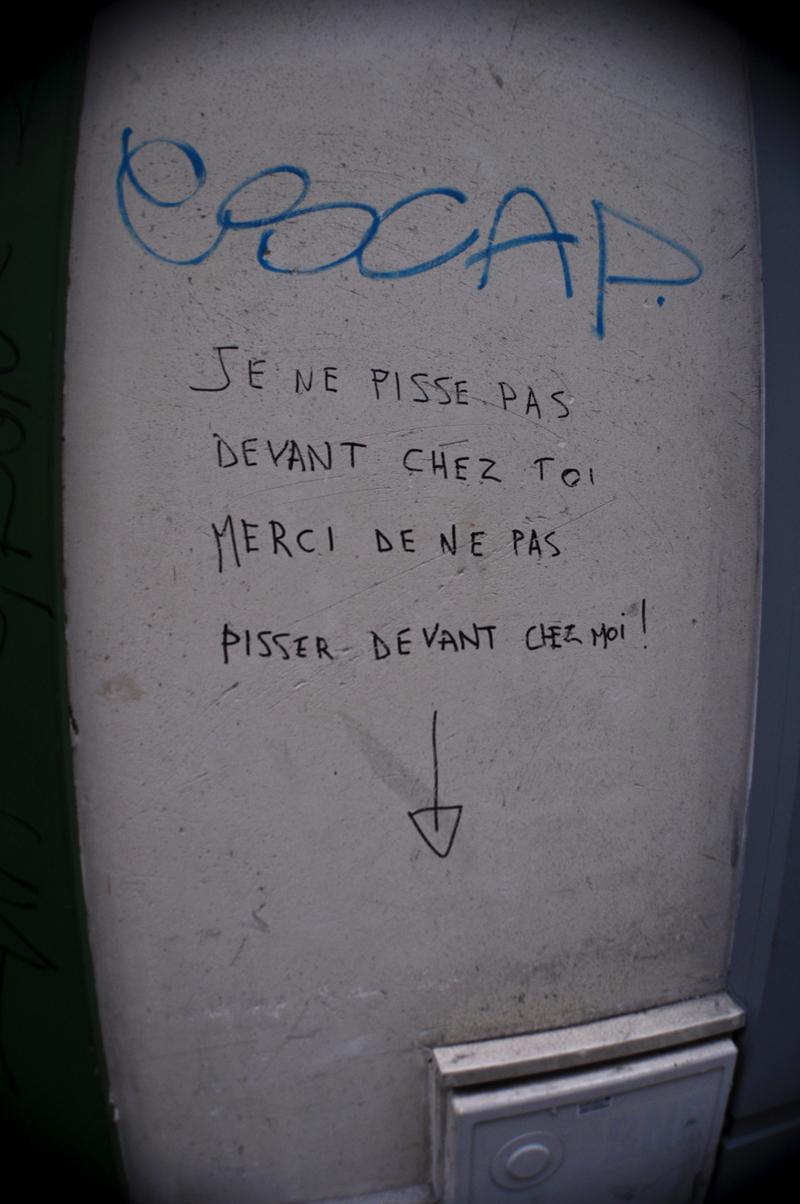 JE NE PISSE PAS
DEVANT CHEZ TOI
MERCI DE NE PAS
PISSER DEVANT CHEZ MOI!